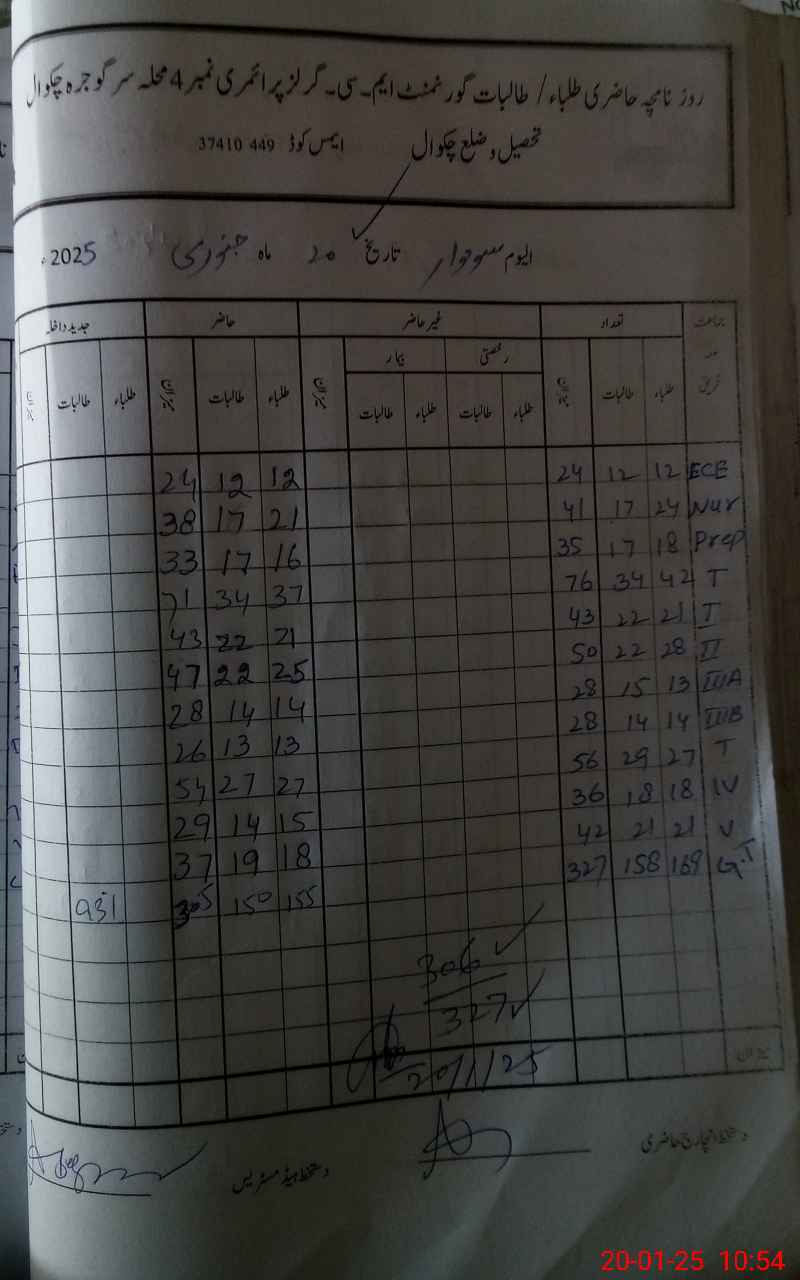 روز نامچہ حاضری طلباء / طالبات گورنمنٹ ایم۔سی۔ گرلز پرائمری نمبر 4 محلہ سر گوجرہ چکوال
تحصیل و ضلع چکوال ایمس کوڈ 449 37410
الیوم سوموار تاریخ 20 ماہ جنوری 2025ء
جماعت تعداد غیر حاضر حاضر جدید داخلہ
رخصتی بیمار
طلباء طالبات میزان طلباء طالبات طلباء طالبات میزان طلباء طالبات میزان طلباء طالبات میزان
ECE 12 12 24 12 12 24
Nur 24 17 41 21 17 38
Prep 18 17 35 16 17 33
T 42 34 76 37 34 71
I 21 22 43 21 22 43
II 28 22 50 25 22 47
IIIA 13 15 28 14 14 28
IIIB 14 14 28 13 13 26
T 27 29 56 27 27 54
IV 18 18 36 15 14 29
V 21 21 42 18 19 37
G.T 169 158 327 155 150 305 93%
306
327
20/1/25
میزان
دستخط انچارج حاضری
دستخط ہیڈ مسٹریس
20-01-25 10:54